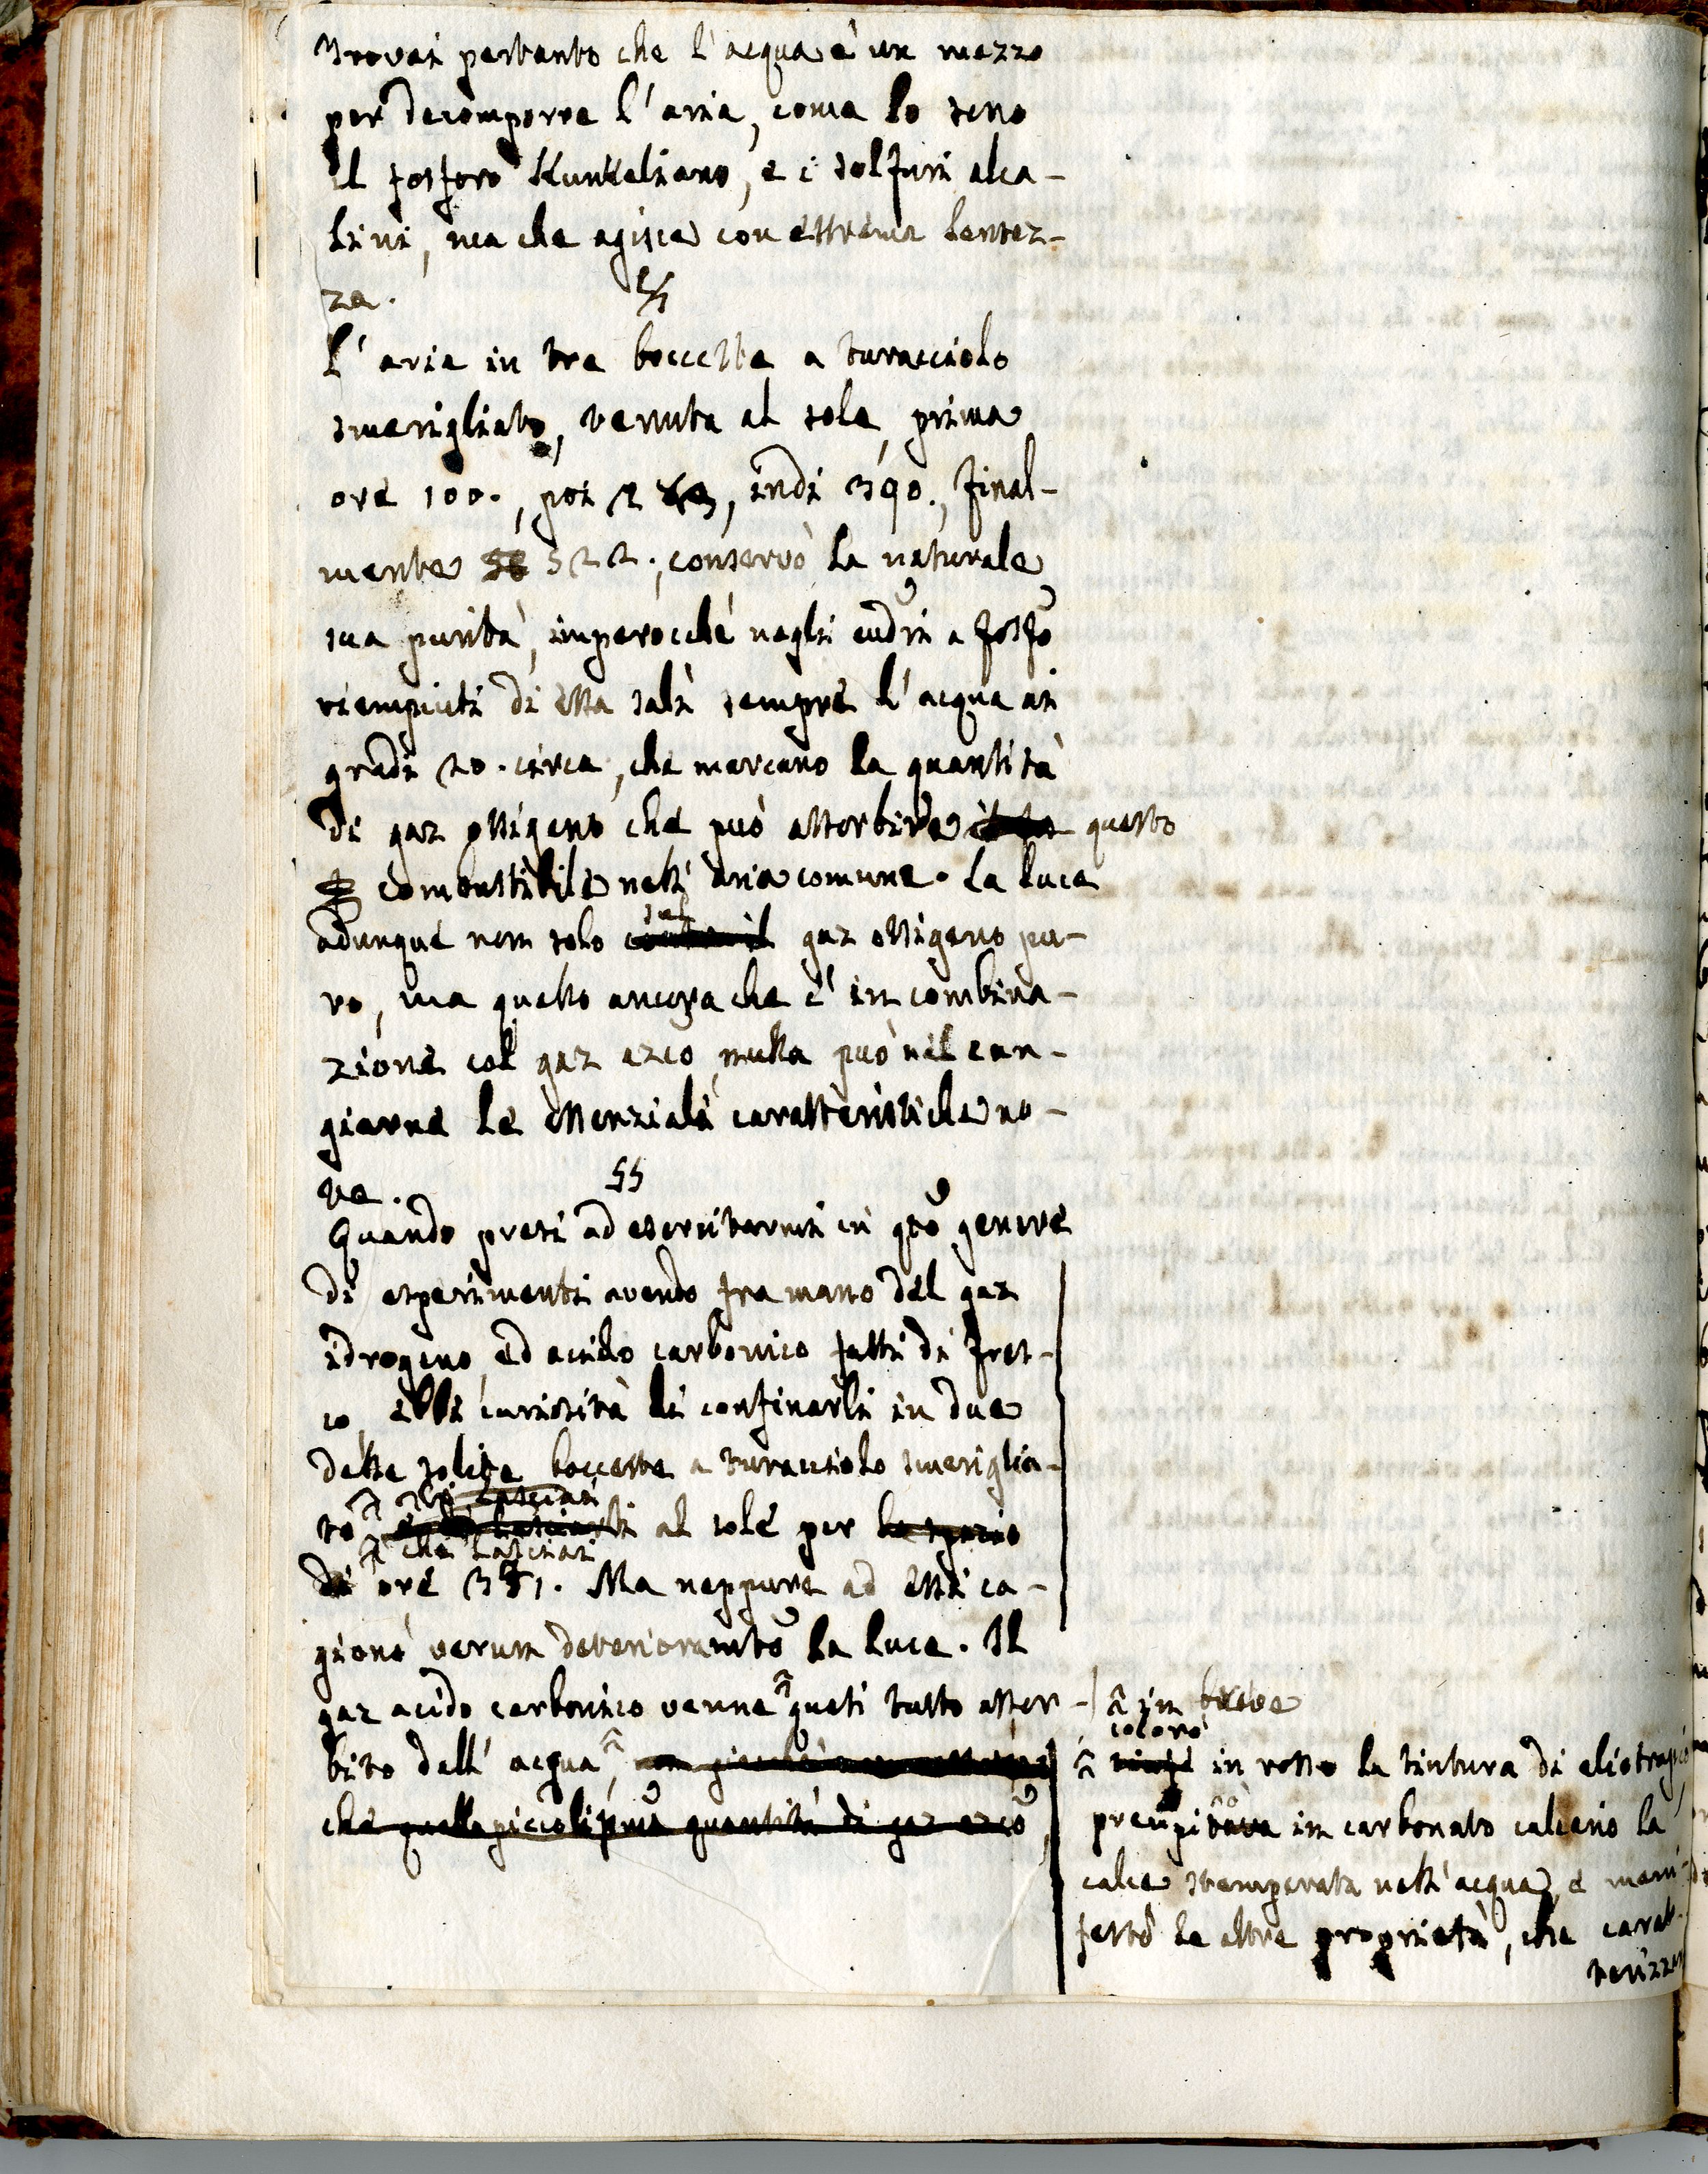 Trovai pertanto che l'acqua è un mezzo
per decomporre l'aria, come lo sono
il fosforo Kunkeliano, e i solfuri alca-
lini, ma che agisce con estrema lentez-
za.
L'aria in tre boccette a turacciolo
smerigliato, tenuta al sole, prima
ore 100., poi 2, indi 390., final-
mente 522., conservò la naturale
sua purità, imperocchè negli eudri a fosfo
riempiuti di essa salì sempre l'acqua ai
gradi 20. circa, che marcano la quantità
di gaz ossigeno che può assorbire questo
combustibile nell'aria comune. La luce
sul
adunque non solo gaz ossigeno pu-
ro, ma quello ancora che è in combina-
zione col gaz azoo, nulla può nel can-
giarne le essenziali caratteristiche no-
te.
55
Quando presi ad esercitarmi in qto genere
di esperimenti avendo fra mano del gaz
idrogeno, ed acido carbonico fatti di fres-
co, ebbi curiosità di confinarli in due
delle solite boccette a turacciolo smeriglia-
lasciai
to al sole per lo spazio
che lasciai
di ore 351. Ma neppure ad essi ca-
gionò verun deterioramto la luce. Il
gaz acido carbonico venne quasi tutto assor-
bito dall'acqua,
che quella piccolissma quantità di gaz azoo
in breve
colorò
tinse in rosso la tintura di eliotropio
precipitò in carbonato calcario la
calce stemperata nell'acqua, e mani-
festò le altre proprietà, che carat-
terizzan